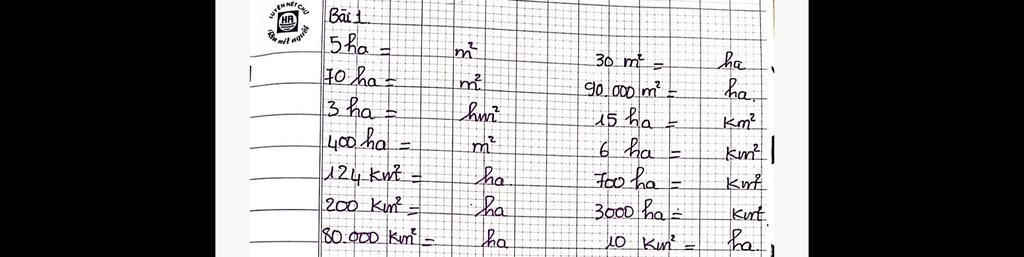 LUYỆN NÉT CHỮ
HA
Rèn nét người
Bài 1
5 ha = m²
70 ha = m²
3 ha = hm²
400 ha = m²
124 Km² = ha.
200 Km² = ha
80.000 Km² = ha
30 m² = ha
90.000 m² = ha.
15 ha = Km²
6 ha = Km²
700 ha = Km²
3000 ha = Km².
10 Km² = ha.